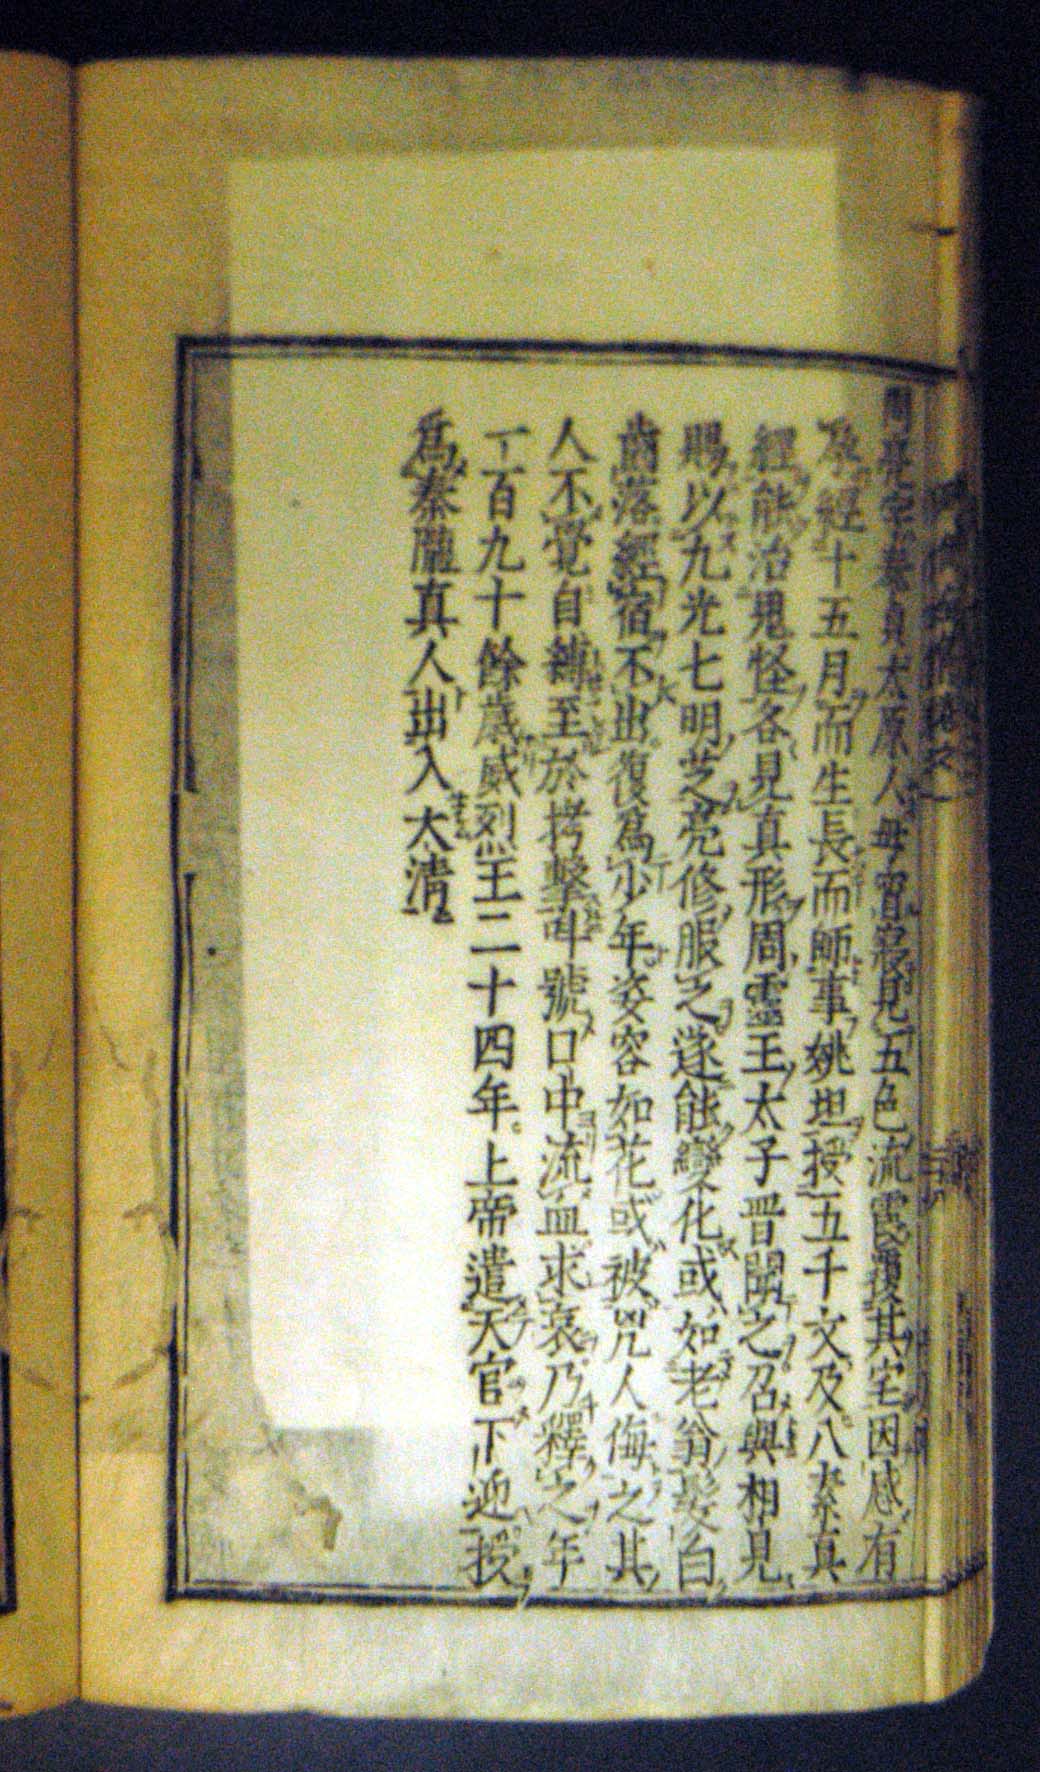 周亮字泰貞太原人母宵寢見五色流霞覆其宅因感有
孕經十五月而生長而師事姚坦授五千文及八素真
經能治鬼怪各見真形周靈王太子晋聞之召與相見
賜以九光七明芝亮修服之遂能變化或如老翁髮白
齒落經宿不出復爲少年姿容如花或被咒人侮之其
人不覺自縛至於拷擊叫號口中流血求哀乃釋之年
百九十餘歲威烈王二十四年上帝遣天官下迎授
爲秦隴真人出入太清